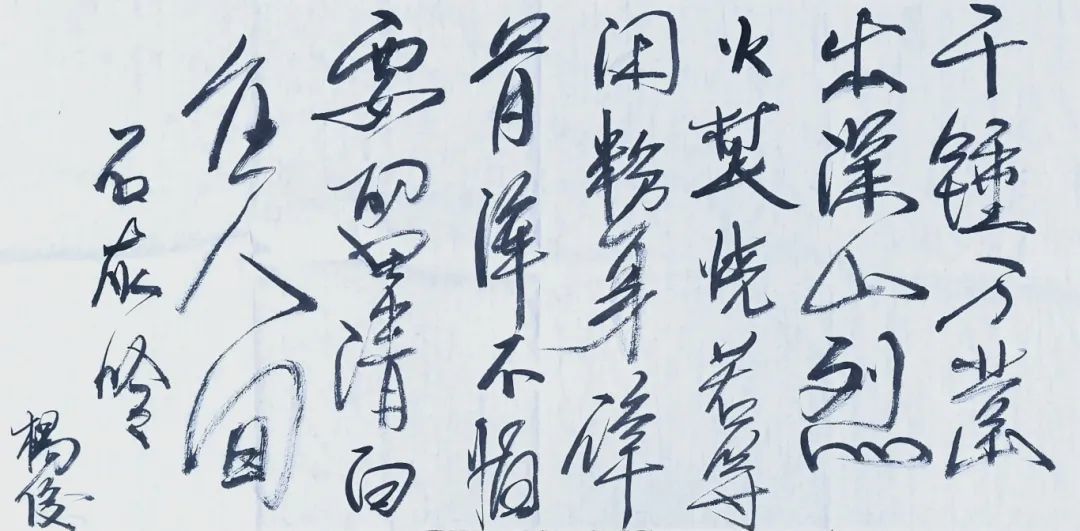 千锤万凿
出深山烈
火焚烧若等
闲粉身碎
骨浑不怕
要留清白
在人间
石灰吟
楊俊